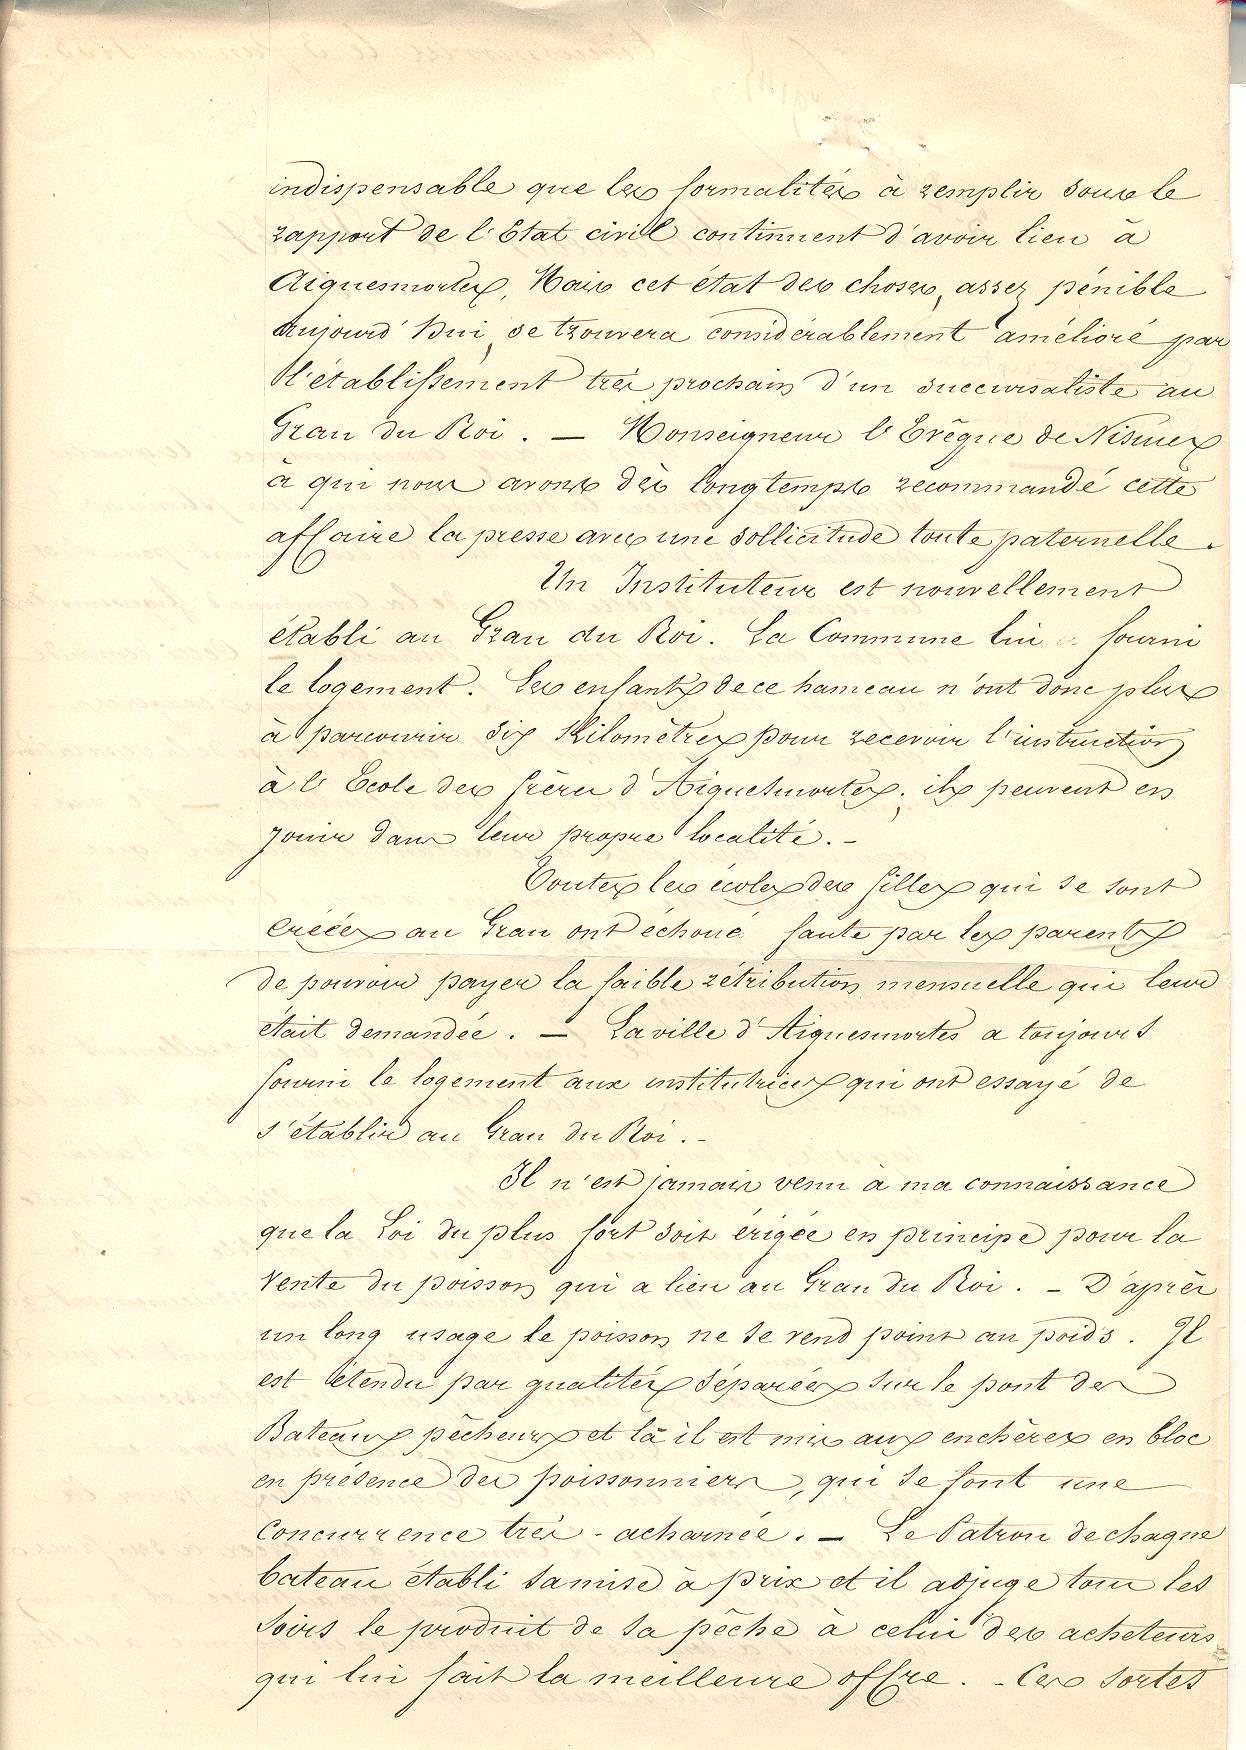 indispensable que les formalités à remplir sous le
rapport de l'Etat civil continuent d'avoir lieu à
Aiguesmortes, Mais cet état des choses, assez pénible
aujourd'hui, se trouvera considérablement amélioré par
l'établissement très prochain d'un succursaliste au
Grau du Roi. — Monseigneur l'Evêque de Nismes
à qui nous avons dès longtemps recommandé cette
affaire la presse avec une sollicitude toute paternelle.
Un Instituteur est nouvellement
établi au Grau du Roi. La Commune lui a fourni
le logement. Les enfants de ce hameau n'ont donc plus
à parcourir six Kilomètres pour recevoir l'instruction
à l'Ecole des frères d'Aiguesmortes; ils peuvent en
jouir dans leur propre localité. -
Toutes les écoles des filles qui se sont
créées au Grau ont échoué faute par les parents
de pouvoir payer la faible rétribution mensuelle qui leur
était demandée. — La ville d'Aiguesmortes a toujours
fourni le logement aux institutrices qui ont essayé de
s'établir au Grau du Roi. -
Il n'est jamais venu à ma connaissance
que la Loi du plus fort soit érigée en principe pour la
vente du poisson qui a lieu au Grau du Roi. - D'après
un long usage le poisson ne se vend point au poids. Il
est étendu par qualités séparées sur le pont des
Bateaux pêcheurs et là il est mis aux enchères en bloc
en présence des poissonniers, qui se font une
concurrence très-acharnée. — Le Patron de chaque
bateau établi sa mise à prix et il adjuge tous les
soirs le produit de sa pêche à celui des acheteurs
qui lui fait la meilleure offre. - Ces sortes